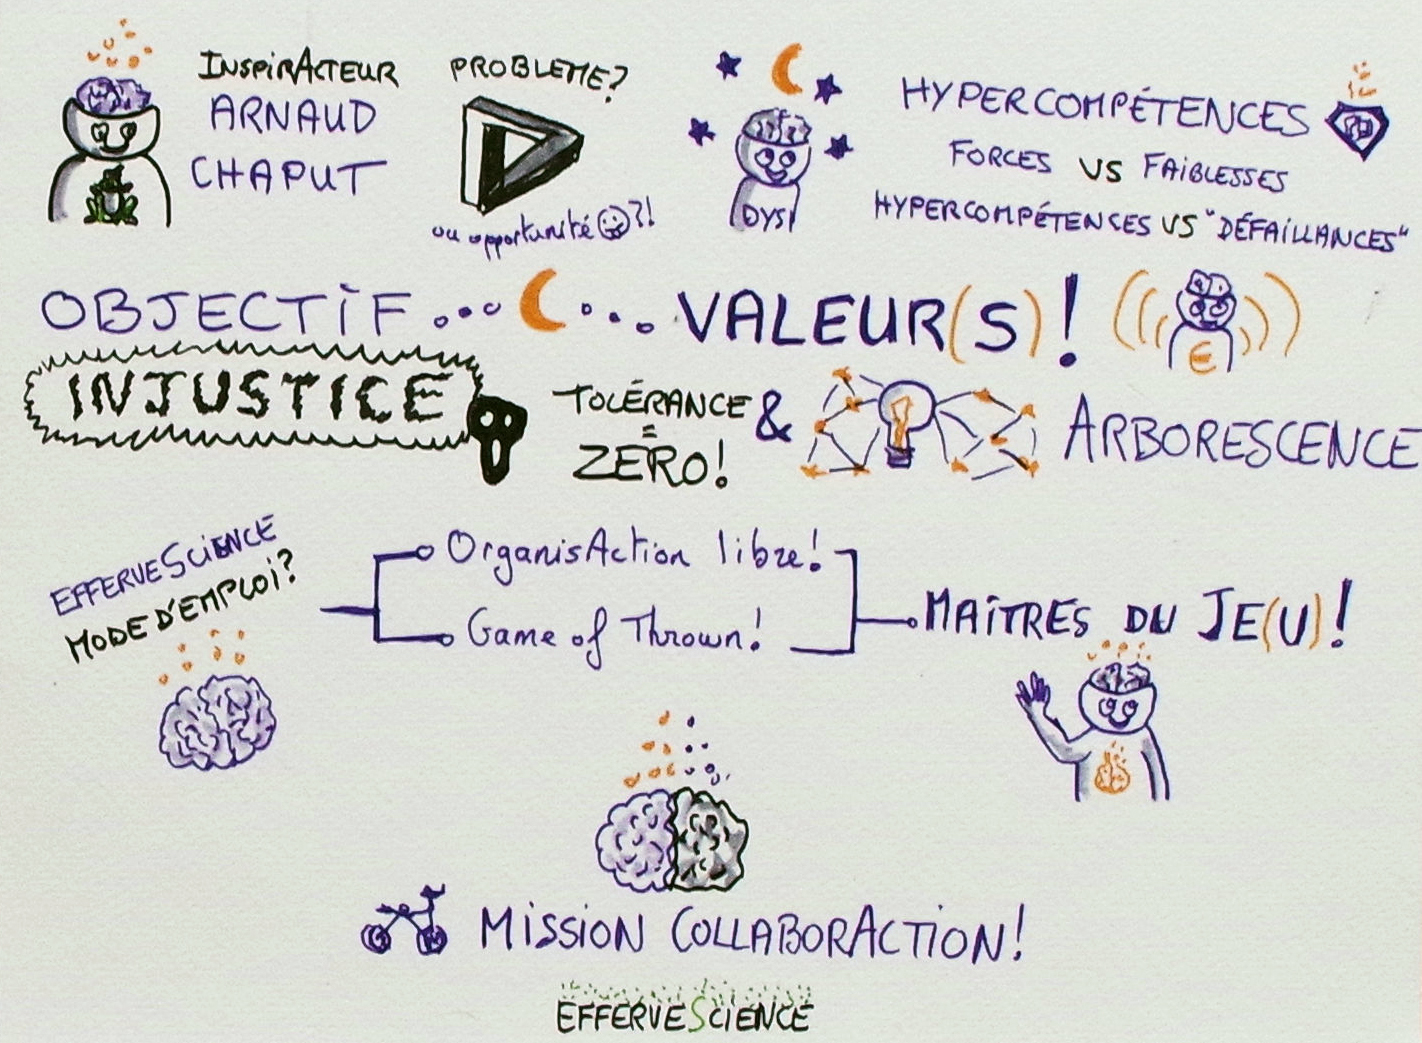 INSPIRACTEUR
ARNAUD
CHAPUT
PROBLEME?
ou opportunité ?!
DYS
HYPERCOMPÉTENCES
FORCES VS FAIBLESSES
HYPERCOMPÉTENCES VS "DÉFAILLANCES"
OBJECTIF ... ... VALEUR(S)!
€
INJUSTICE
TOLÉRANCE
=
ZÉRO!
&
ARBORESCENCE
EFFERVESCIENCE
MODE D'EMPLOI?
OrganisAction libre!
Game of Thrown!
MAÎTRES DU JE(U)!
MISSION COLLABORACTION!
EFFERVESCIENCE